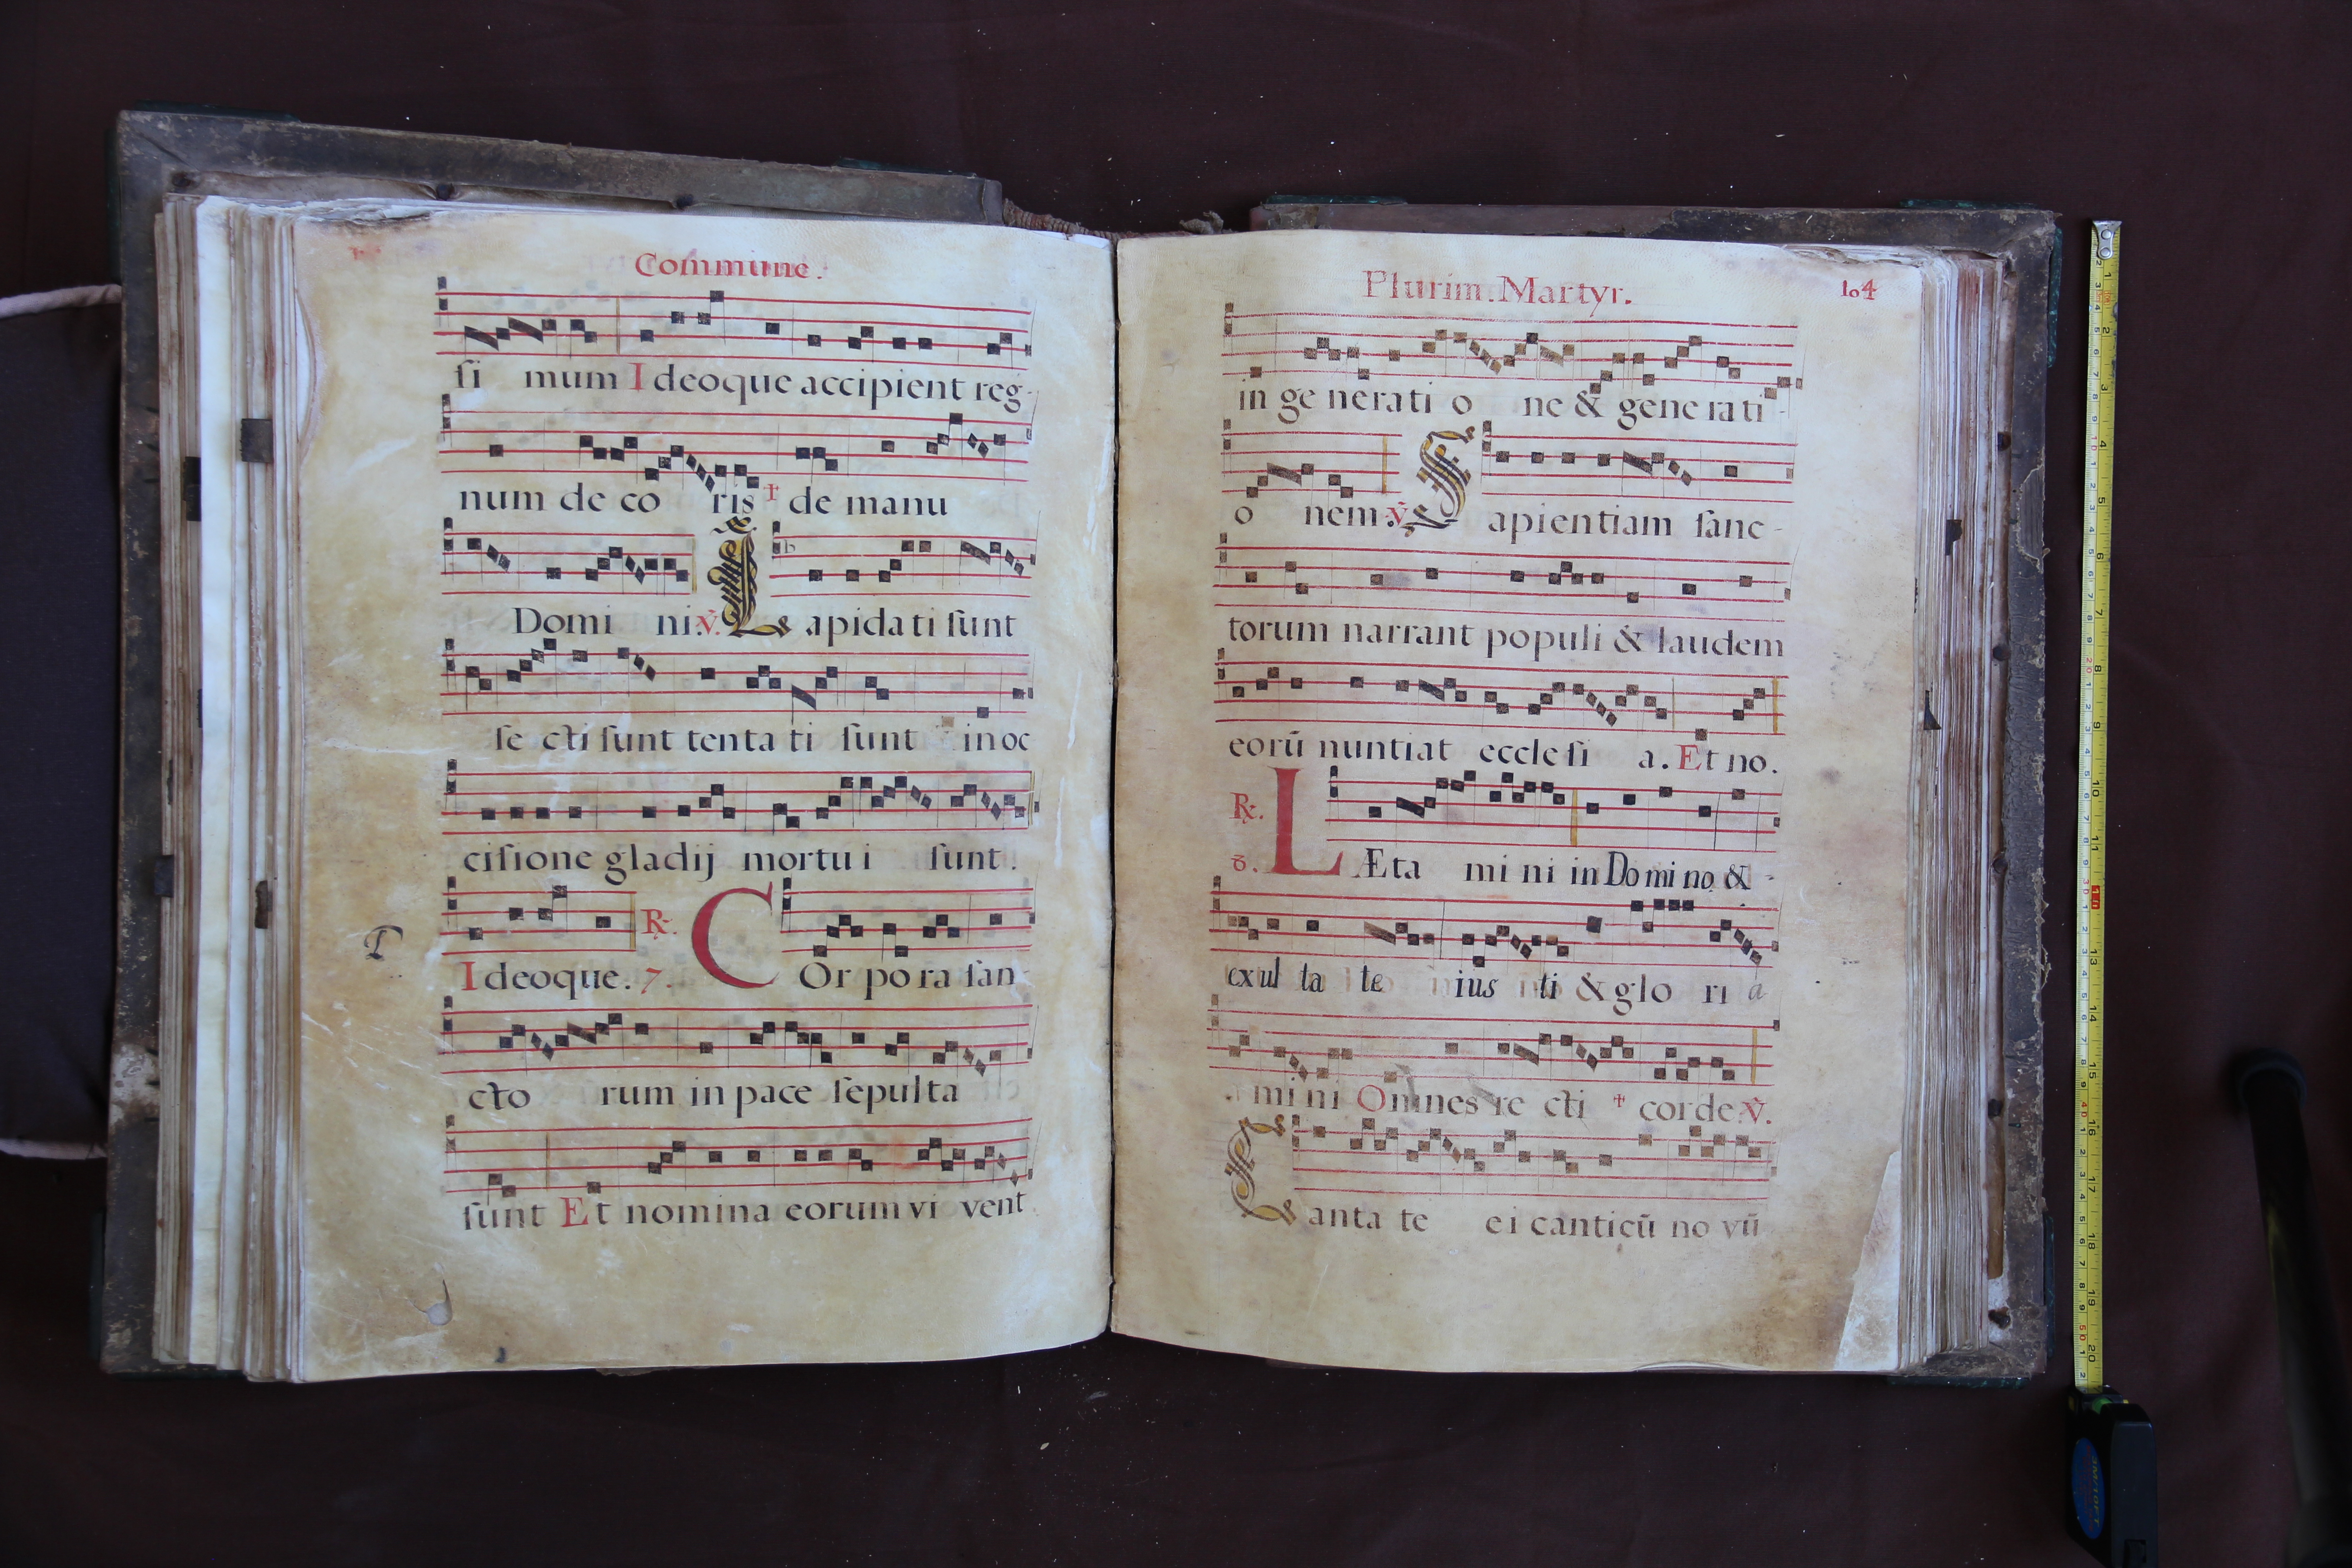 Commune.
ſi mum Ideoque accipient reg-
num de co ris † de manu
Domi ni. ℣. Lapidati ſunt
ſe cti ſunt tenta ti ſunt in oc
ciſione gladij mortu i ſunt.
Ideoque. 7. ℟. COr po ra ſan-
cto rum in pace ſepulta
ſunt Et nomina eorum vi vent
Plurim. Martyr. 104
in ge nerati o ne & gene ra ti-
o nem ℣. Sapientiam ſanc-
torum narrant populi & laudem
eorū nuntiat eccle ſi a. Et no.
℟. 8. LÆta mi ni in Do mi no &-
exul ta te ius ti & glo ri a
mi ni Omnes re cti † corde ℣.
Canta te ei canticū no vū